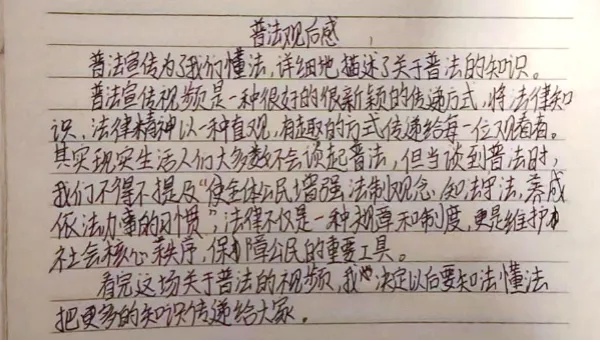 普法观后感
普法宣传为了我们懂法，详细地描述了关于普法的知识。
普法宣传视频是一种很好的很新颖的传递方式，将法律知
识、法律精神以一种直观，有趣的方式传递给每一位观看者。
其实现实生活人们大多数不会谈起普法，但当谈到普法时，
我们不得不提及“使全体公民增强法制观念，知法守法，养成
依法办事的习惯”，法律不仅是一种规章和制度，更是维护
社会核心秩序，保障公民的重要工具。
看完这场关于普法的视频，我也决定以后要知法懂法
把更多的知识传递给大家。